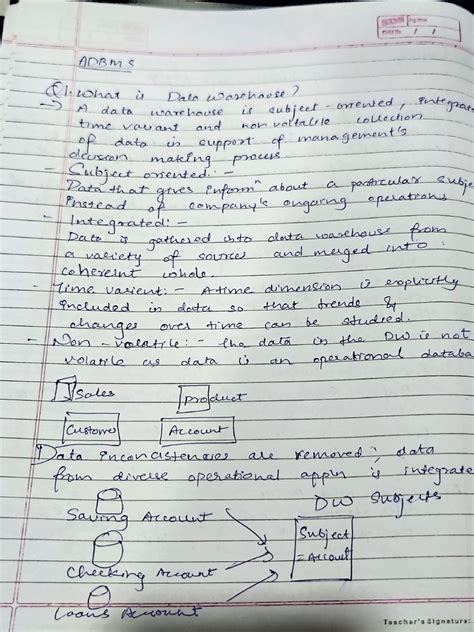 ADBMS
Q1. What is Data Warehouse?
→ A data warehouse is subject-oriented, integrate
time variant and non voltalile collection
of data in support of management's
decision making process.
- Subject oriented: -
Data that gives informⁿ about a particular subje
instead of company's ongoing operations
- Integrated: -
Data is gathered into data warehouse from
a variety of sources and merged into
coherent whole.
- Time varient: - A time dimension is explicitly
included in data so that trends &
changes over time can be studied.
- Non-volatile: - the data in the DW is not
volatile as data is an operational databa
Sales
product
Customer
Account
Data inconsistencies are removed; data
from diverse operational appln is integrate
DW Subjects
Saving Account
Subject
= Account
Checking Account
Loans Account
Teacher's Signature